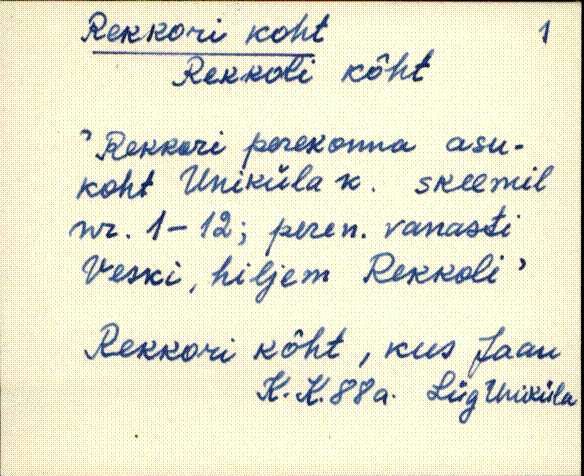 Rekkori koht 1
Rekkoli kôht
'Rekkori perekonna asu-
koht Uniküla k. skeemil
nr. 1-12; peren. vanasti
Veski, hiljem Rekkoli'
Rekkori kôht, kus Jaan
K.K. 88a. Liig Uniküla